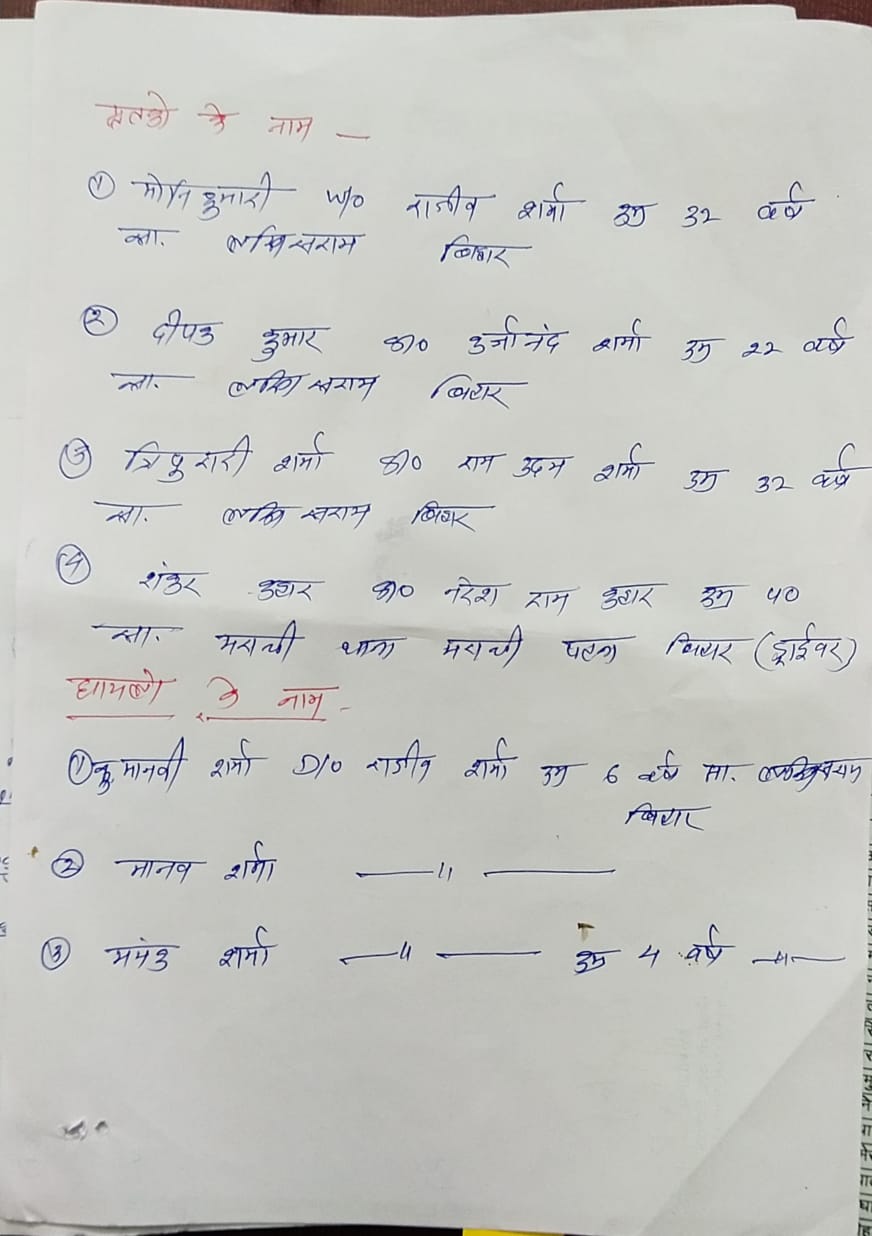 मृतको के नाम —
① मोनि कुमारी W/O राजीव शर्मा उम्र 32 वर्ष
सा. लखिसराय बिहार
② दीपक कुमार S/O दुर्गानंद शर्मा उम्र 22 वर्ष
सा. लखिसराय बिहार
③ त्रिपुरारी शर्मा S/O राम उदय शर्मा उम्र 32 वर्ष
सा. लखिसराय बिहार
④ शंकर ठाकुर S/O नरेश राम ठाकुर उम्र 40
सा. मराची थाना मराची पटना बिहार (ड्राईवर)
घायलो के नाम -
① कु मानवी शर्मा D/O राजीव शर्मा उम्र 6 वर्ष सा. लखिसराय
बिहार
② मानव शर्मा —— " ——
③ शर्मा — " —— उम्र 4 वर्ष — " —